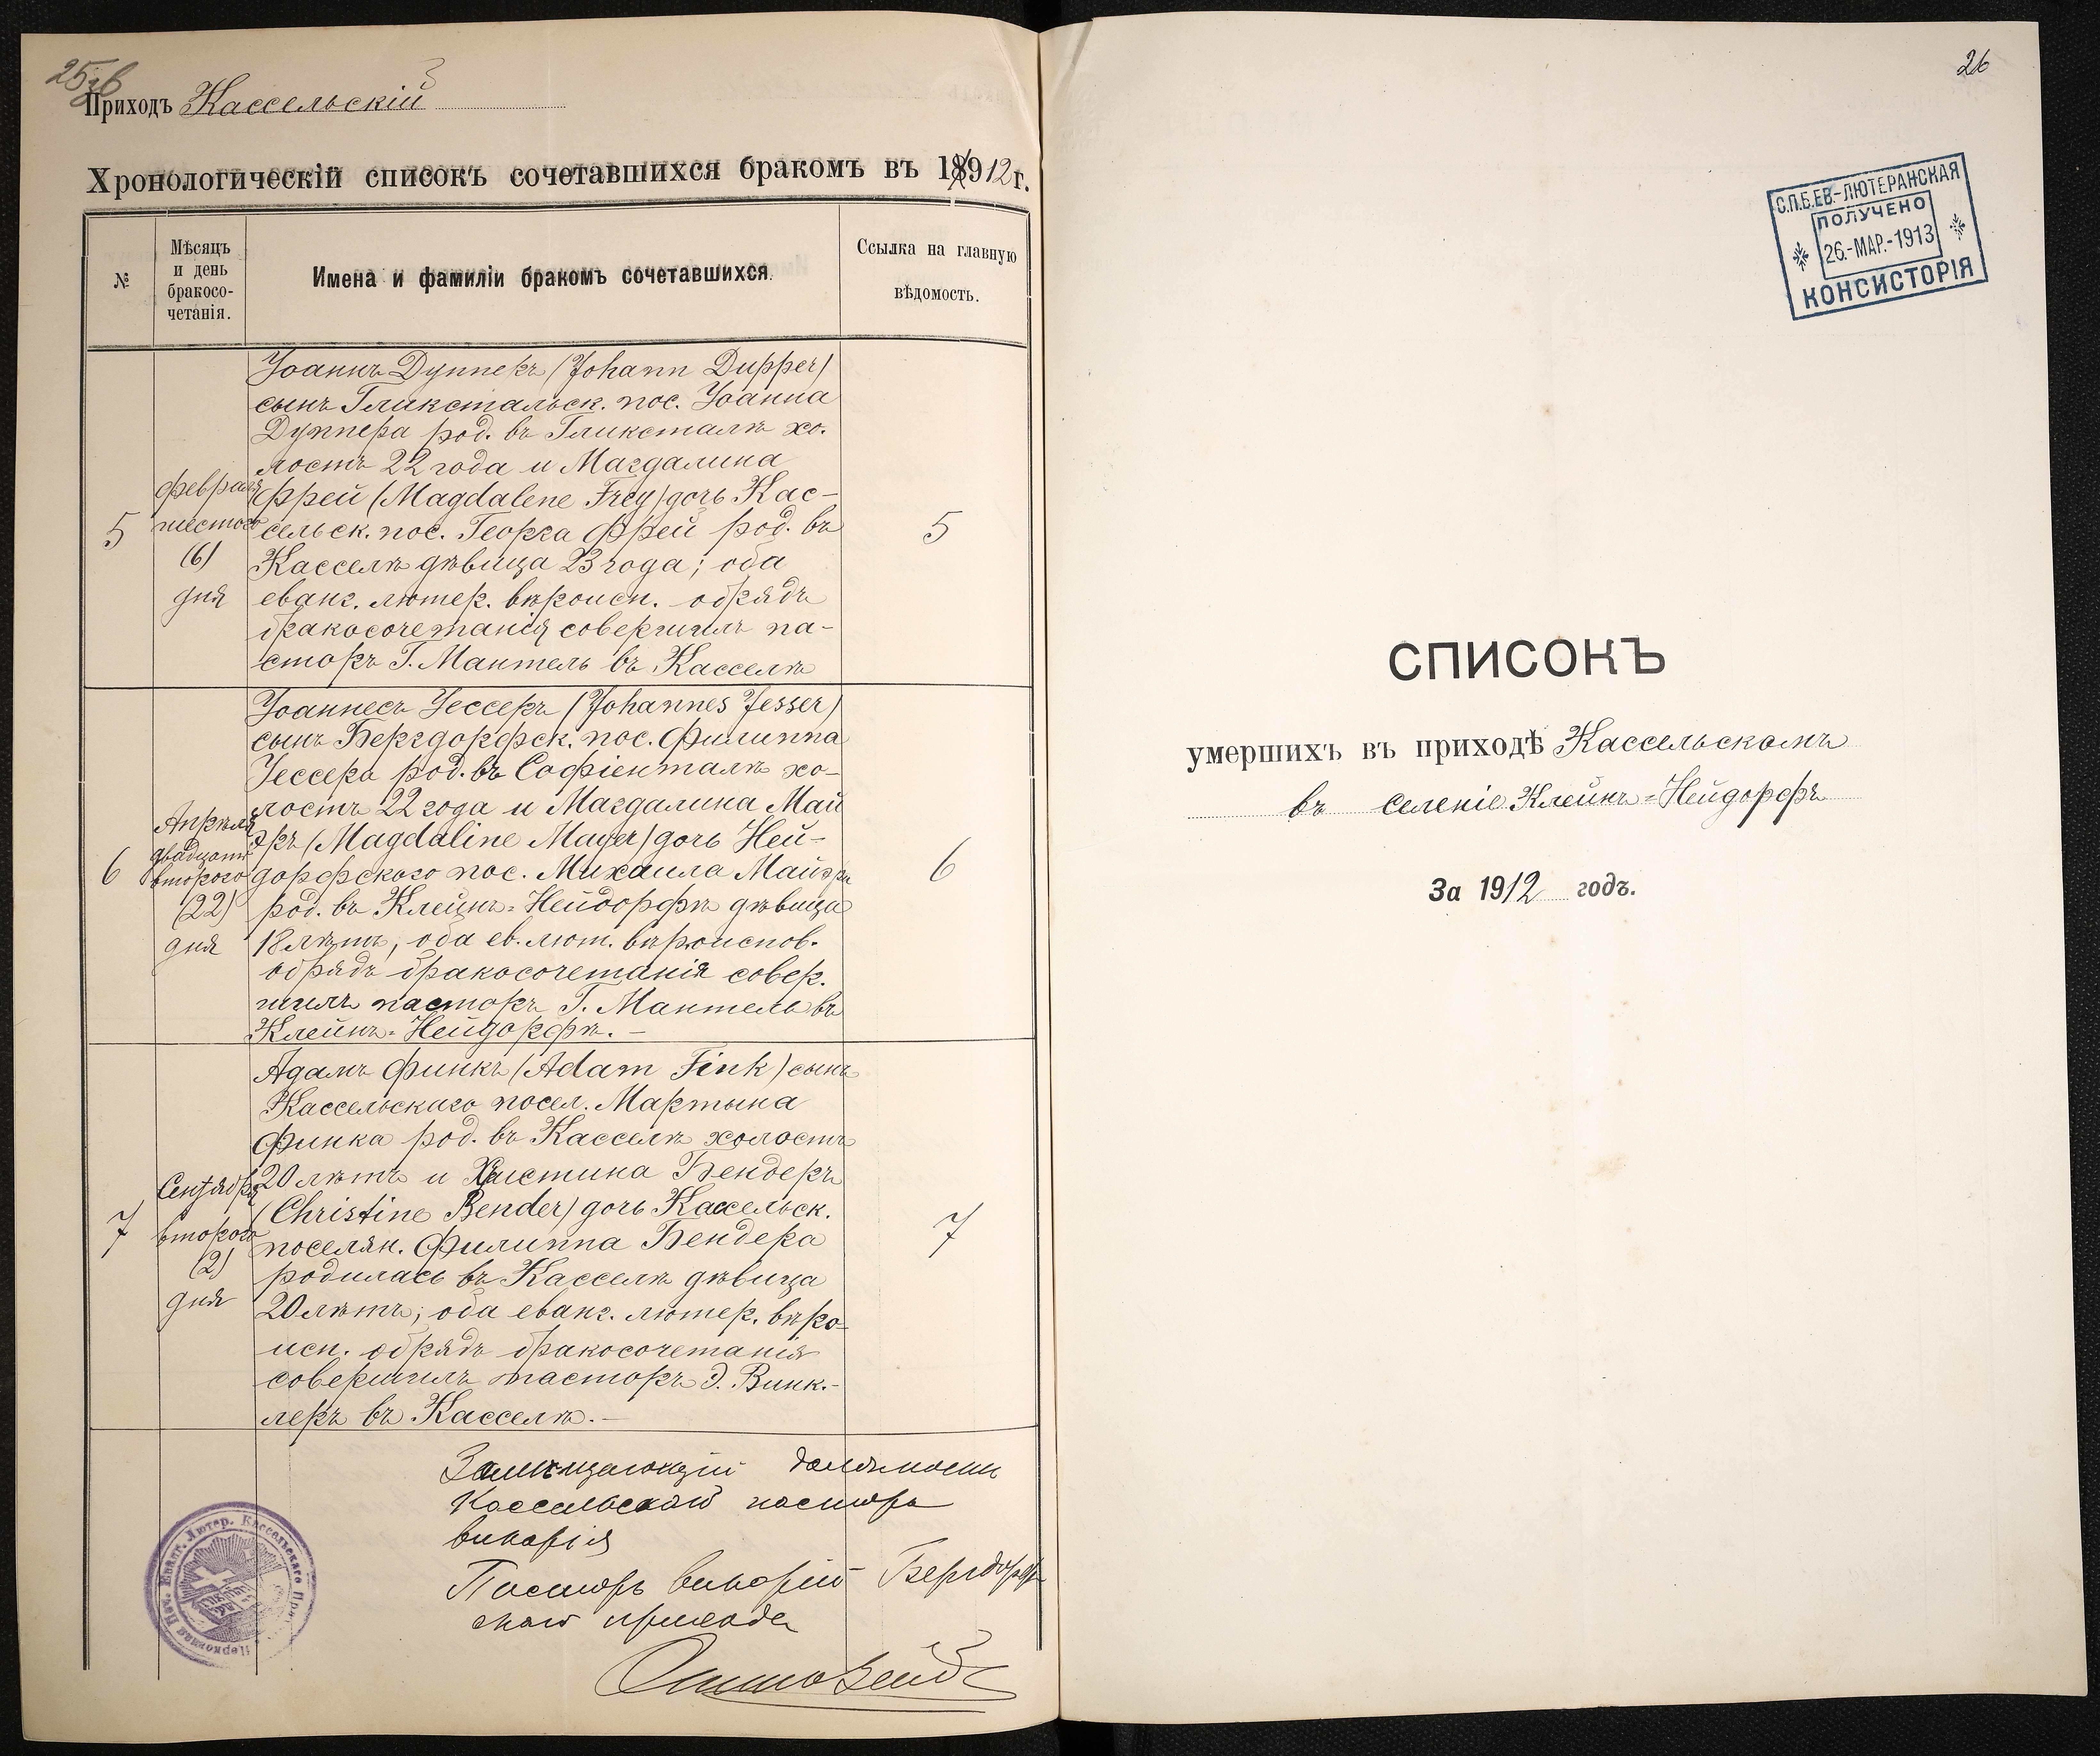 25об
3
Приходъ Кассельскій
Хронологическій списокъ сочетавшихся бракомъ въ 18912 г.
№
Мѣсяцъ
и день
бракосо-
четанія.
Имена и фамиліи бракомъ сочетавшихся.
Ссылка на главную
вѣдомость.
5
февраля
шестого
(6)
дня
Іоаннъ Дупперъ (Johann Dupper)
сынъ Гликстальск. пос. Іоанна
Дуппера род. въ Гликсталѣ хо-
лостъ 22 года и Магдалина
Фрей (Magdalene Frey) дочь Кас-
сельск. пос. Георга Фрей род. въ
Касселѣ дѣвица 23 года; оба
еванг. лютер. вѣроисп. обрядъ
бракосочетанія совершилъ па-
сторъ Г. Мантель въ Касселѣ
5
6
Апрѣля
двадцать
второго
(22)
дня
Іоаннесъ Іессеръ (Johannes Jesser)
сынъ Бергдорфск. пос. Филиппа
Іессера род. въ Софіенталѣ хо-
лостъ 22 года и Магдалина Май
эръ (Magdaline Mayer) дочь Ней-
дорфского пос. Михаила Майэра
род. въ Клейнъ-Нейдорфѣ дѣвица
18 лѣтъ, оба ев. лют. вѣроиспов.
обрядъ бракосочетанія совер.
шилъ пасторъ Г. Мантель въ
Клейнъ-Нейдорфѣ. –
6
7
Сентября
второго
(2)
дня
Адамъ Финкъ (Adam Fink) сынъ
Кассельскаго посел. Мартына
Финка род. въ Касселѣ холостъ
20 лѣтъ и Христина Бендеръ
(Christine Bender) дочь Кассельск.
поселян. Филиппа Бендера
родилась въ Касселѣ дѣвица
20 лѣтъ; оба еванг. лютер. вѣро-
исп. обрядъ бракосочетанія
совершилъ пасторъ Э. Винк-
леръ въ Касселѣ. –
7
Замѣщающій должность
Кассельскаго пастора
викарія
Пасторъ викарій Бергдорф
скаго прихода
Отто Зейб
Церковная Печ. Еванг. Лютер. Кассельскаго Прих.
26
С.П.Б. ЕВ.-ЛЮТЕРАНСКАЯ
ПОЛУЧЕНО
26.-МАР.-1913
КОНСИСТОРІЯ
СПИСОКЪ
умершихъ въ приходѣ Кассельскомъ
въ селеніе Клейнъ-Нейдорфъ
За 1912 годъ.